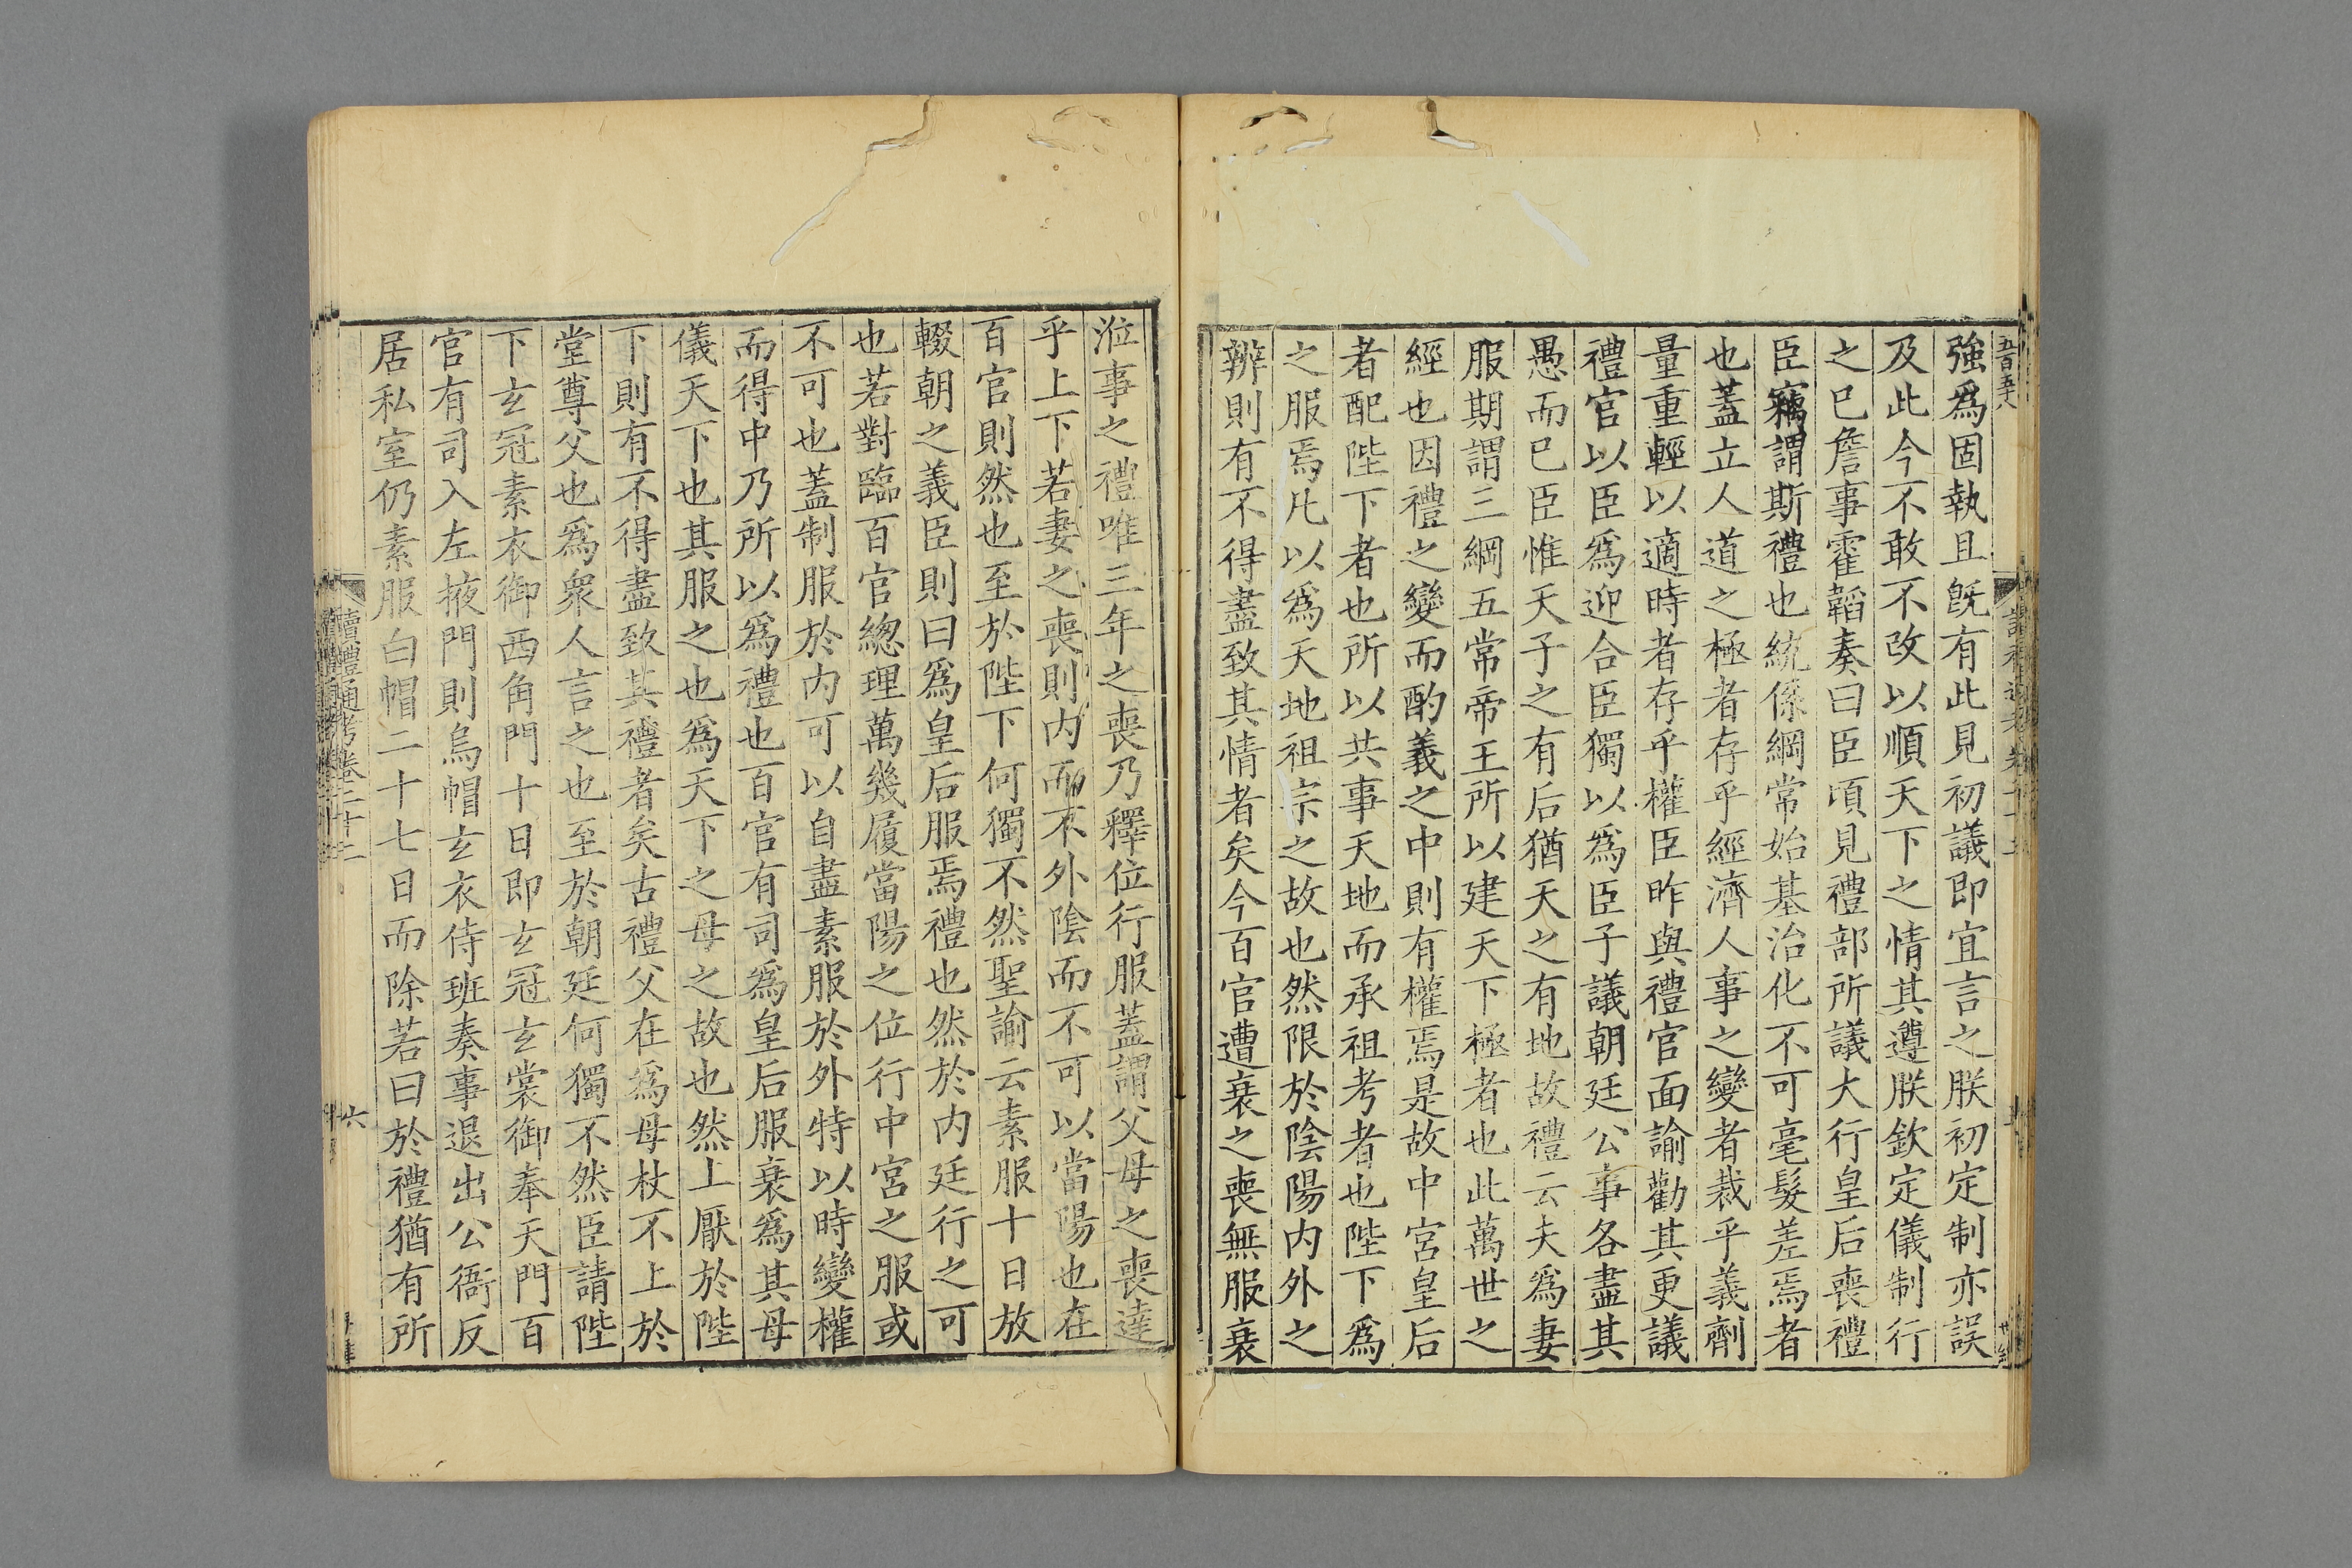 五百五十八
強爲固執且旣有此見初議即宜言之朕初定制亦誤
及此今不敢不改以順天下之情其遵朕欽定儀制行
之巳詹事霍韜奏曰臣頃見禮部所議大行皇后喪禮
臣竊謂斯禮也統係綱常始基治化不可毫髮差焉者
也蓋立人道之極者存乎經濟人事之變者裁乎義劑
量重輕以適時者存乎權臣昨與禮官面諭勸其更議
禮官以臣爲迎合臣獨以爲臣子議朝廷公事各盡其
愚而巳臣惟天子之有后猶天之有地故禮云夫爲妻
服期謂三綱五常帝王所以建天下極者也此萬世之
經也因禮之變而酌義之中則有權焉是故中宮皇后
者配陛下者也所以共事天地而承祖考者也陛下爲
之服焉凡以爲天地祖宗之故也然限於陰陽内外之
辨則有不得盡致其情者矣今百官遭衰之喪無服衰
涖事之禮唯三年之喪乃釋位行服蓋謂父母之喪達
乎上下若妻之喪則内而不外陰而不可以當陽也在
百官則然也至於陛下何獨不然聖諭云素服十日放
輟朝之義臣則曰爲皇后服焉禮也然於内廷行之可
也若對臨百官總理萬幾履當陽之位行中宮之服或
不可也蓋制服於内可以自盡素服於外特以時變權
而得中乃所以爲禮也百官有司爲皇后服衰爲其母
儀天下也其服之也爲天下之母之故也然上厭於陛
下則有不得盡致其禮者矣古禮父在爲母杖不上於
堂尊父也爲衆人言之也至於朝廷何獨不然臣請陛
下玄冠素衣御西角門十日即玄冠玄裳御奉天門百
官有司入左掖門則烏帽玄衣侍班奏事退出公衙反
居私室仍素服白帽二十七日而除若曰於禮猶有所
讀禮通考卷二十二
六